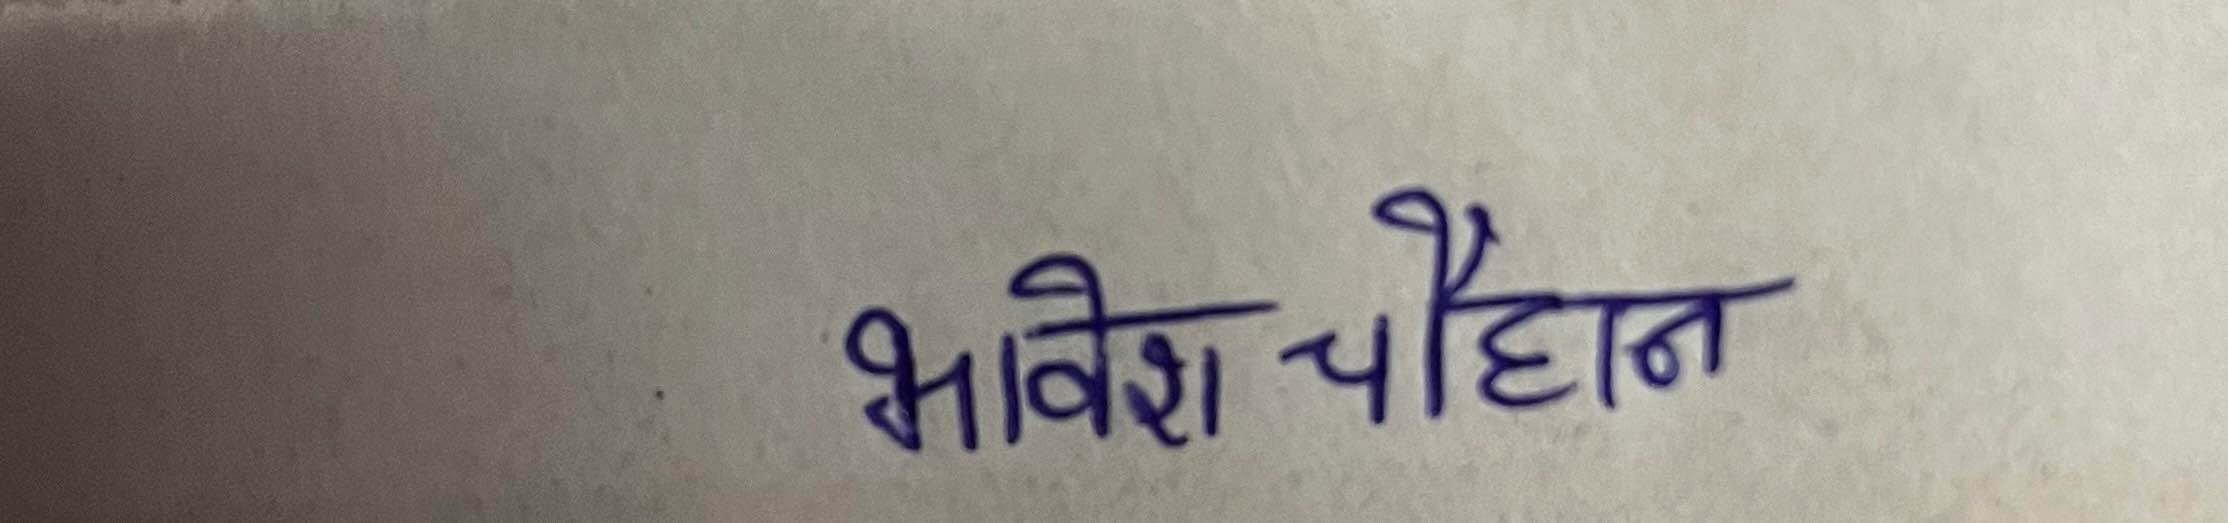 भावेश चौहान